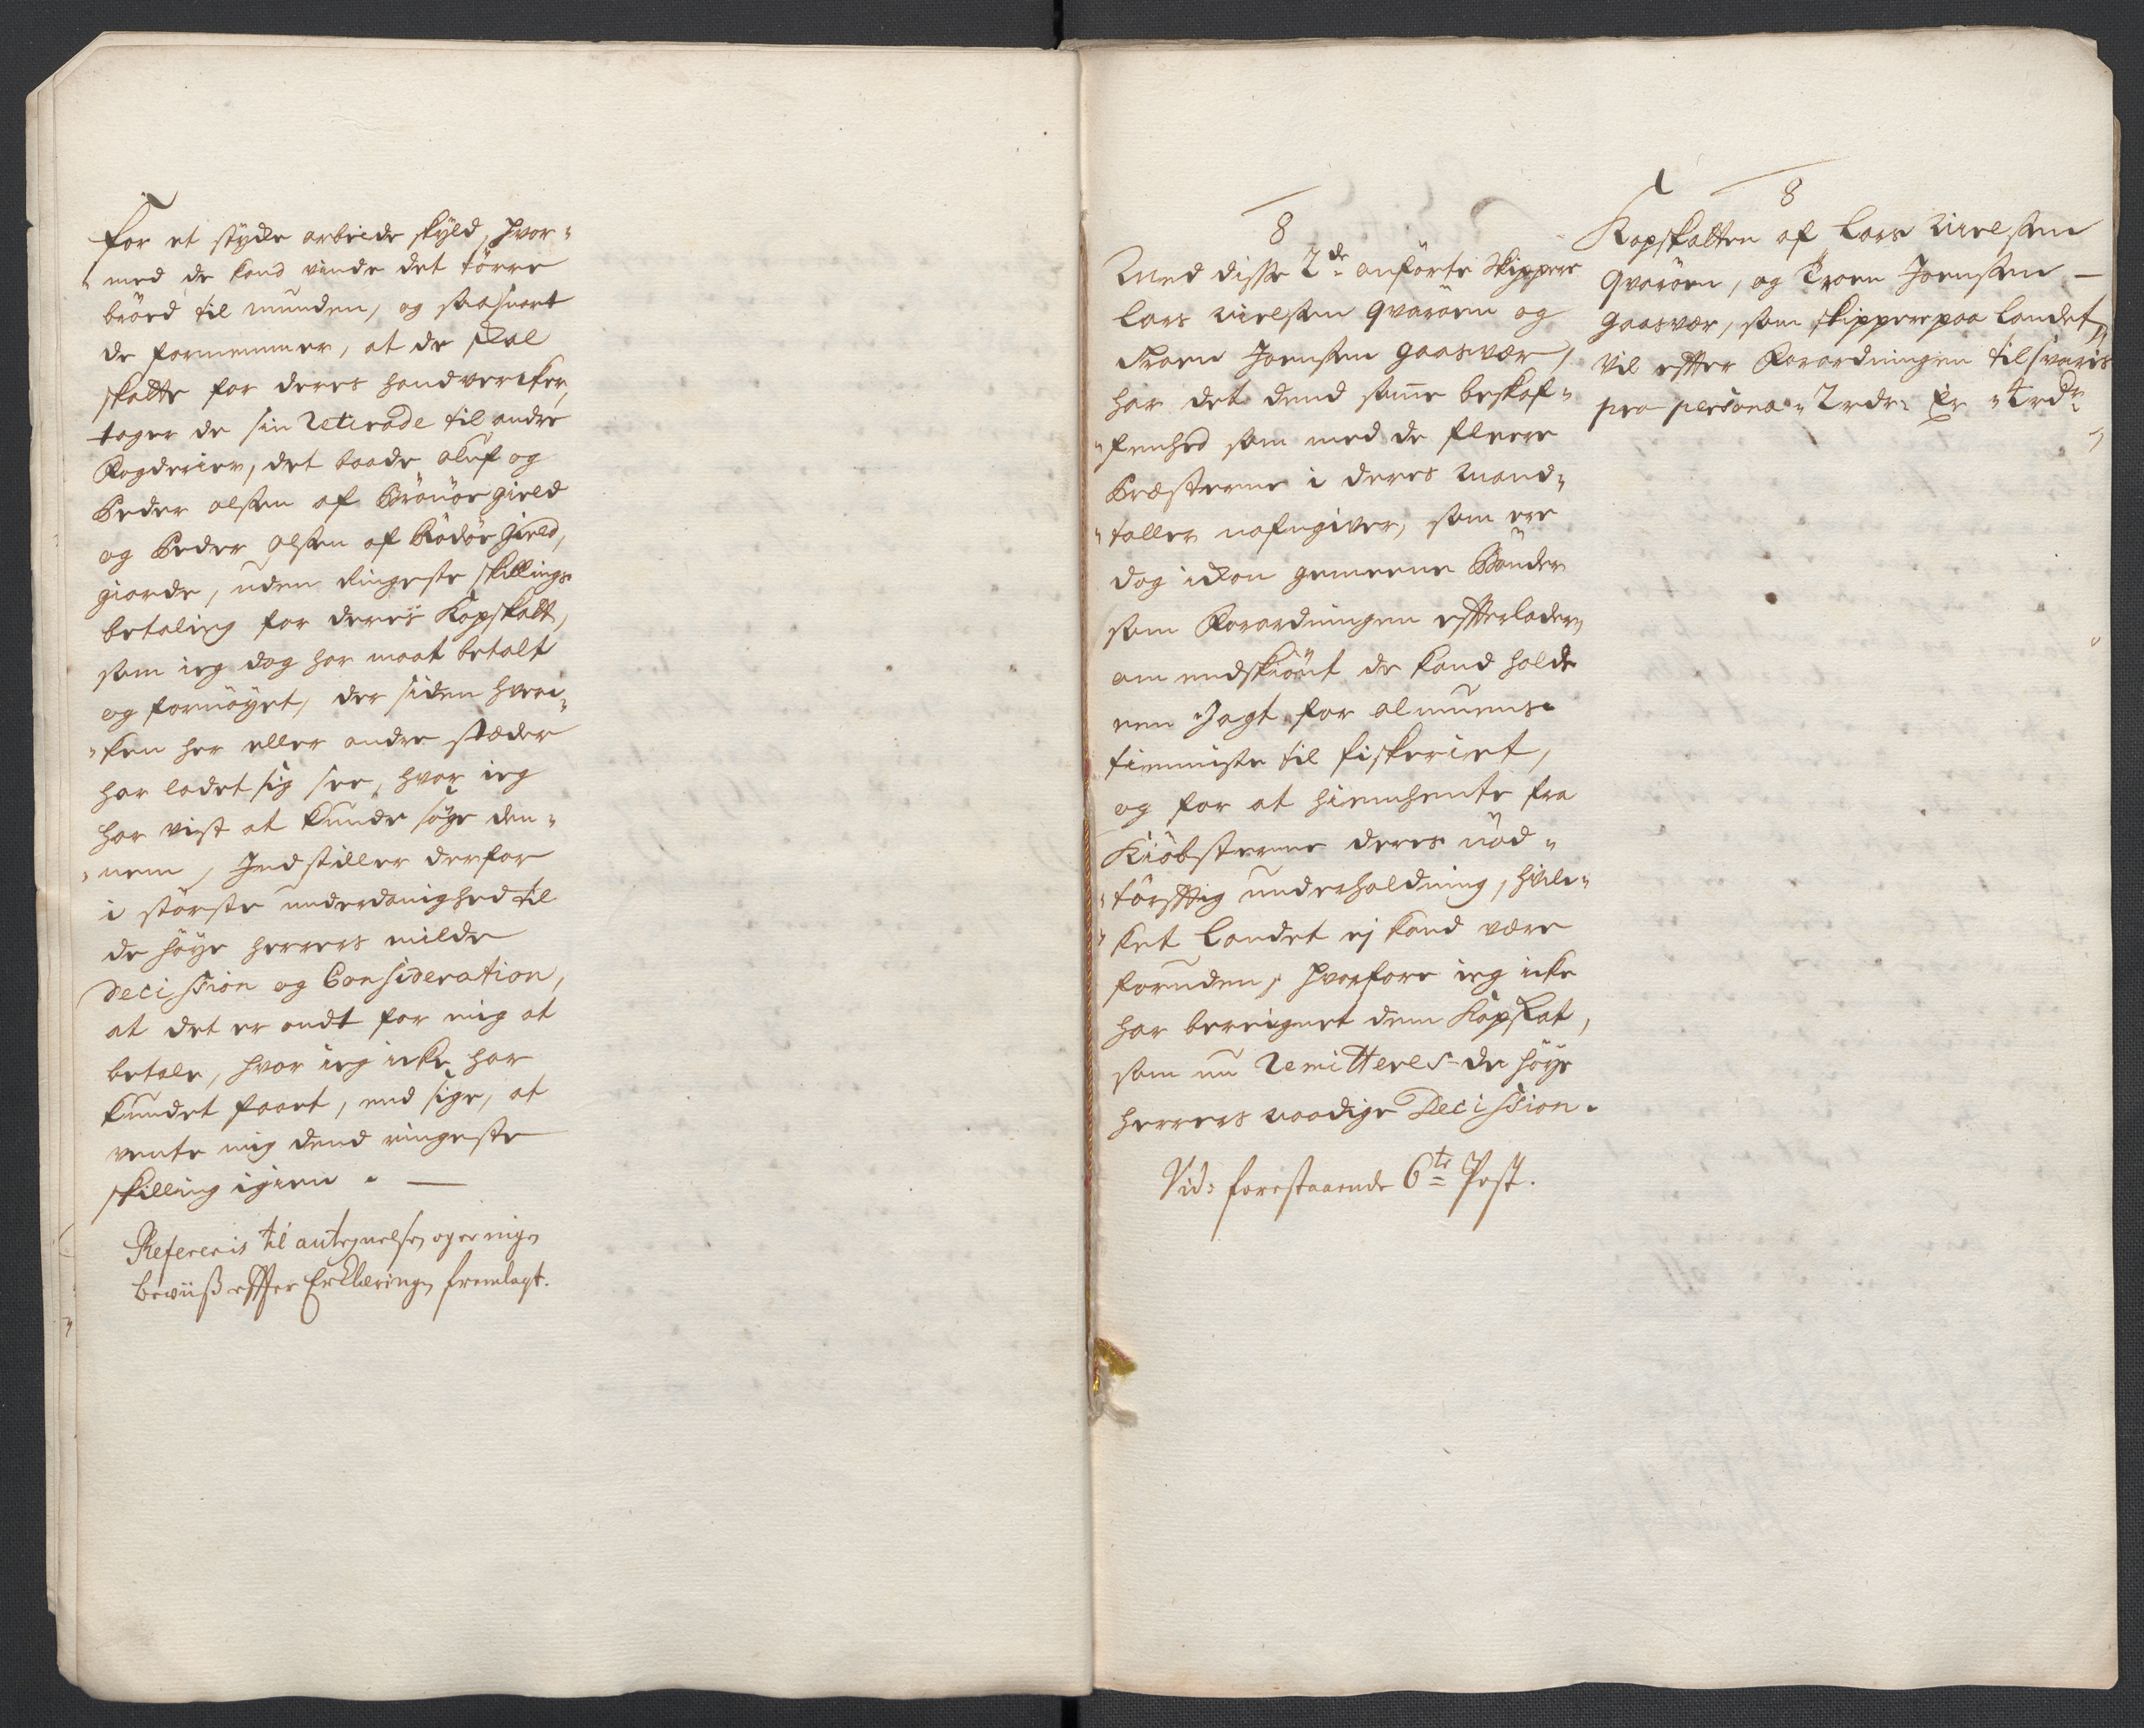 for et stycke arbeide skyld, hvor-
med de kand vinde det törre
bröed til munden, og saa snart
de fornemmer, at de skal
skatte for deres handvercker,
tager de sin Retirade til andre
Fogderier, det baade Oluf og
Peder Olssen af Brönöe gield
og Peder Olssen af Rödöe Gield,
giorde, uden ringeste skillings
betaling for deres Kopskatt,
som ieg dog har maat betalt
og fornöyet, der siden hveri-
ken her eller andre stæder
har ladet sig see, hvor ieg
har vist at kunde söge den-
nem, Indstiller derfor
i störste underdanighed til
de höye herrers milde
Decission og Consideration,
at det er ondt for mig at
betale, hvor ieg icke har
kundet faaet, end sige, at
vente mig dend ringeste
skilling igien. —
Refereris til antegnelsen og er ingen
beviiß effter Erklæringen fremlagt.
8
Med disse 2de anförte Skippere
Lars Nielssen Qvaröen og
Troen Joenssen Gaasvær,
har det dend same beskaf-
fenhed som med de fleere
Præsterne i deres Mand-
taller nafngiver, som ere
dog ickon gemeene Bönder
som Forordningen effterlader,
om endskiönt de kand holde
een Jagt for almuens
tienniste til fiskeriet,
og for at hiemhente fra
Kiöbsterne deres nöd-
törfftig underholdning, hvil-
ket Landet ej kand være
foruden, hvorfore ieg icke
har bereignet dem Kopskat,
som nu Remitteres de höye
herrers naadige Decission.
Vid: forestaaende 6te Post.
8
Kopskatten af Lars Nielssen
Qvaröen, og Troen Joenssen —
Gaasvær, som skippere paa Landet,
vil effter Forordningen tilsvaris
pro persona 2 rdr. Er 4 rdr